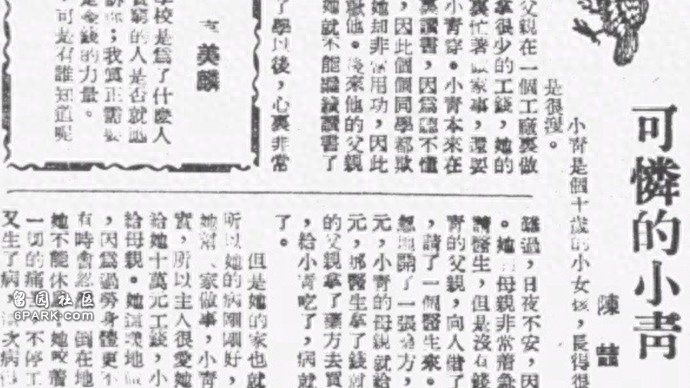 可憐的小青
陳喆
小青是個十歲的小女孩，長得很
是很
父親在一個工廠裏做
拿很少的工錢，她的
裏忙著做家事，還要
小青穿。小青本來在
裏讀書，因為聽不懂
她却非常用功，因此
，因此個個同學都欺
他。後來他的父親
她就不能繼續讀書了
了學以後，心裏非常
難過，日夜不安，因
。她的母親非常着急
請醫生，但是沒有錢
青的父親，向人借了
，請了一個醫生來。
怱地開了一張藥方，
元，小青的母親就給
元，那醫生拿了錢就
的父親拿了藥方去買
，給小青吃了，病就
了。
但是她的家也就
所以她的病剛剛好，
她幫人家做事，小青
實，所以主人很愛她
給她十萬元工錢，小
給母親。她這樣地做
，因為過勞身體更不
有時會忽然倒在地
她不能休 她咬著
一切的痛 不停工
又生了病， 次病
美麟
學校是為了什麼人
窮的人是否就應
訴 ；我真正需要
是金錢的力量。
可是有誰知道呢
留园社区
6PARK.COM